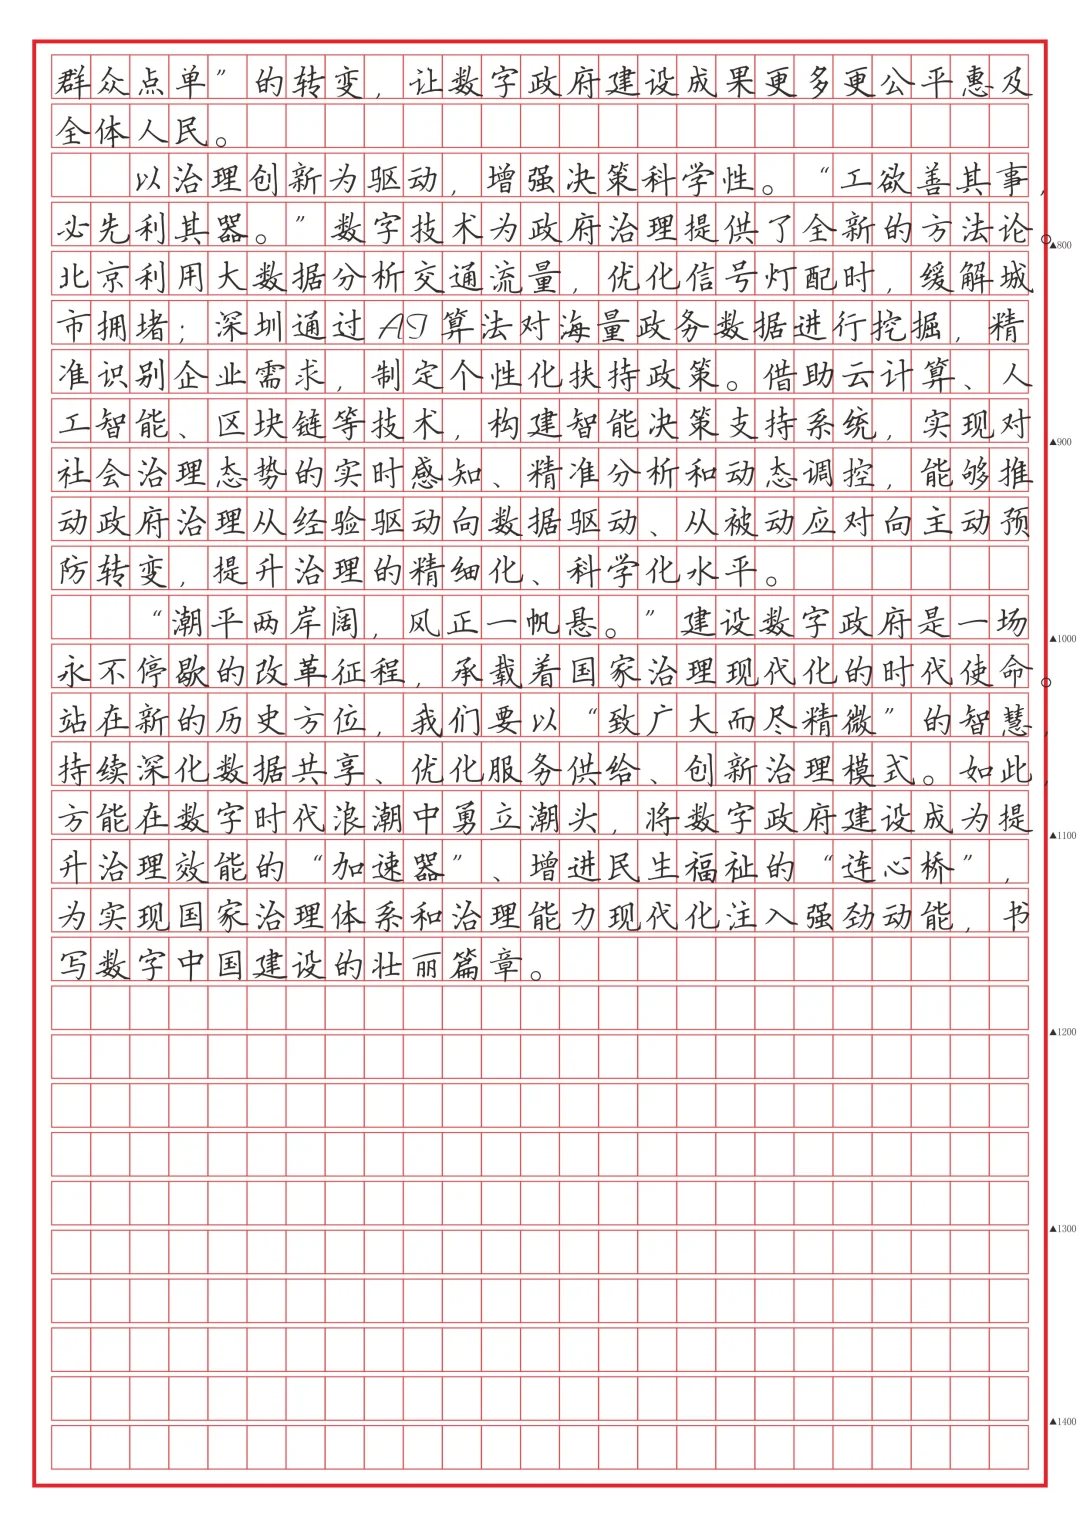 群众点单”的转变，让数字政府建设成果更多更公平惠及
全体人民。
以治理创新为驱动，增强决策科学性。“工欲善其事，
必先利其器。”数字技术为政府治理提供了全新的方法论。
▲800
北京利用大数据分析交通流量，优化信号灯配时，缓解城
市拥堵；深圳通过AI算法对海量政务数据进行挖掘，精
准识别企业需求，制定个性化扶持政策。借助云计算、人
工智能、区块链等技术，构建智能决策支持系统，实现对
▲900
社会治理态势的实时感知、精准分析和动态调控，能够推
动政府治理从经验驱动向数据驱动、从被动应对向主动预
防转变，提升治理的精细化、科学化水平。
“潮平两岸阔，风正一帆悬。”建设数字政府是一场
▲1000
永不停歇的改革征程，承载着国家治理现代化的时代使命。
站在新的历史方位，我们要以“致广大而尽精微”的智慧，
持续深化数据共享、优化服务供给、创新治理模式。如此，
方能在数字时代浪潮中勇立潮头，将数字政府建设成为提
▲1100
升治理效能的“加速器”、增进民生福祉的“连心桥”，
为实现国家治理体系和治理能力现代化注入强劲动能，书
写数字中国建设的壮丽篇章。
▲1200
▲1300
▲1400